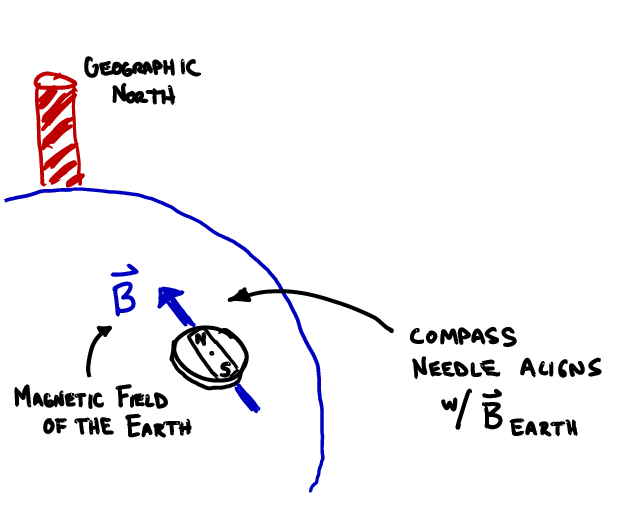 GEOGRAPHIC
NORTH
B
N
S
MAGNETIC FIELD
OF THE EARTH
COMPASS
NEEDLE ALIGNS
w/ B EARTH